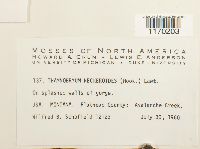 1170203
MOSSES OF NORTH AMERICA
HOWARD A. CRUM - LEWIS E. ANDERSON
UNIVERSITY OF MICHIGAN - DUKE UNIVERSITY
137. THAMNOBRYUM NECKEROIDES (Hook.) Lawt.
On splashed walls of gorge.
USA. MONTANA. Flathead County: Avalanche Creek.
Wilfred B. Schofield July 30, 1960